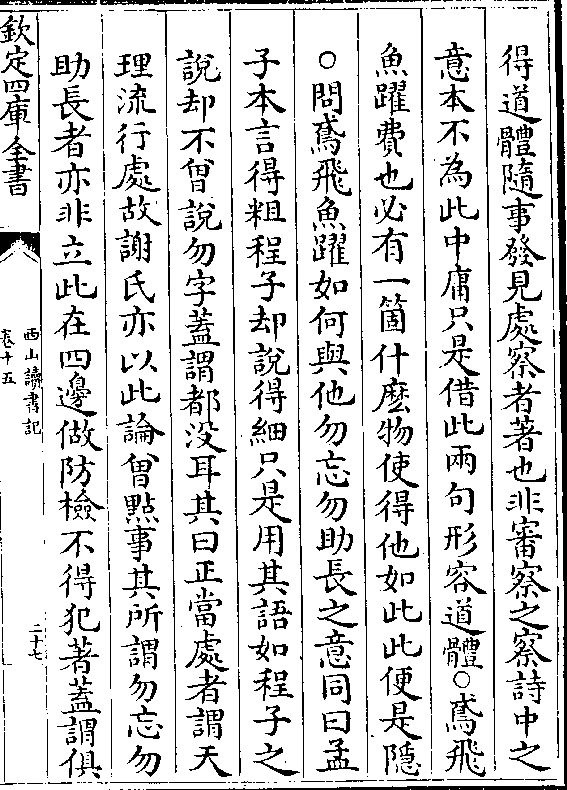 得道體隨事發見處察者著也非審察之察詩中之
意本不為此中庸只是借此兩句形容道體○鳶飛
魚躍費也必有一箇什麽物使得他如此此便是隱
○問鳶飛魚躍如何與他勿忘勿助長之意同曰孟
子本言得粗程子却說得細只是用其語如程子之
說却不曾說勿字蓋謂都没耳其曰正當處者謂天
理流行處故謝氏亦以此論曾點事其所謂勿忘勿
助長者亦非立此在四邊做防檢不得犯著蓋謂俱
欽定四庫全書
西山讀書記
卷十五
二十七